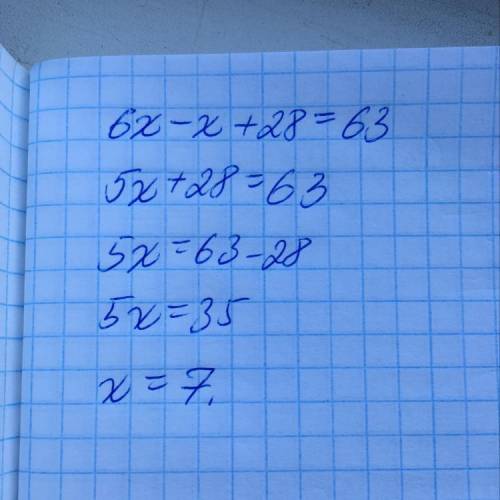 6x-x+28=63
5x+28=63
5x=63-28
5x=35
x=7.